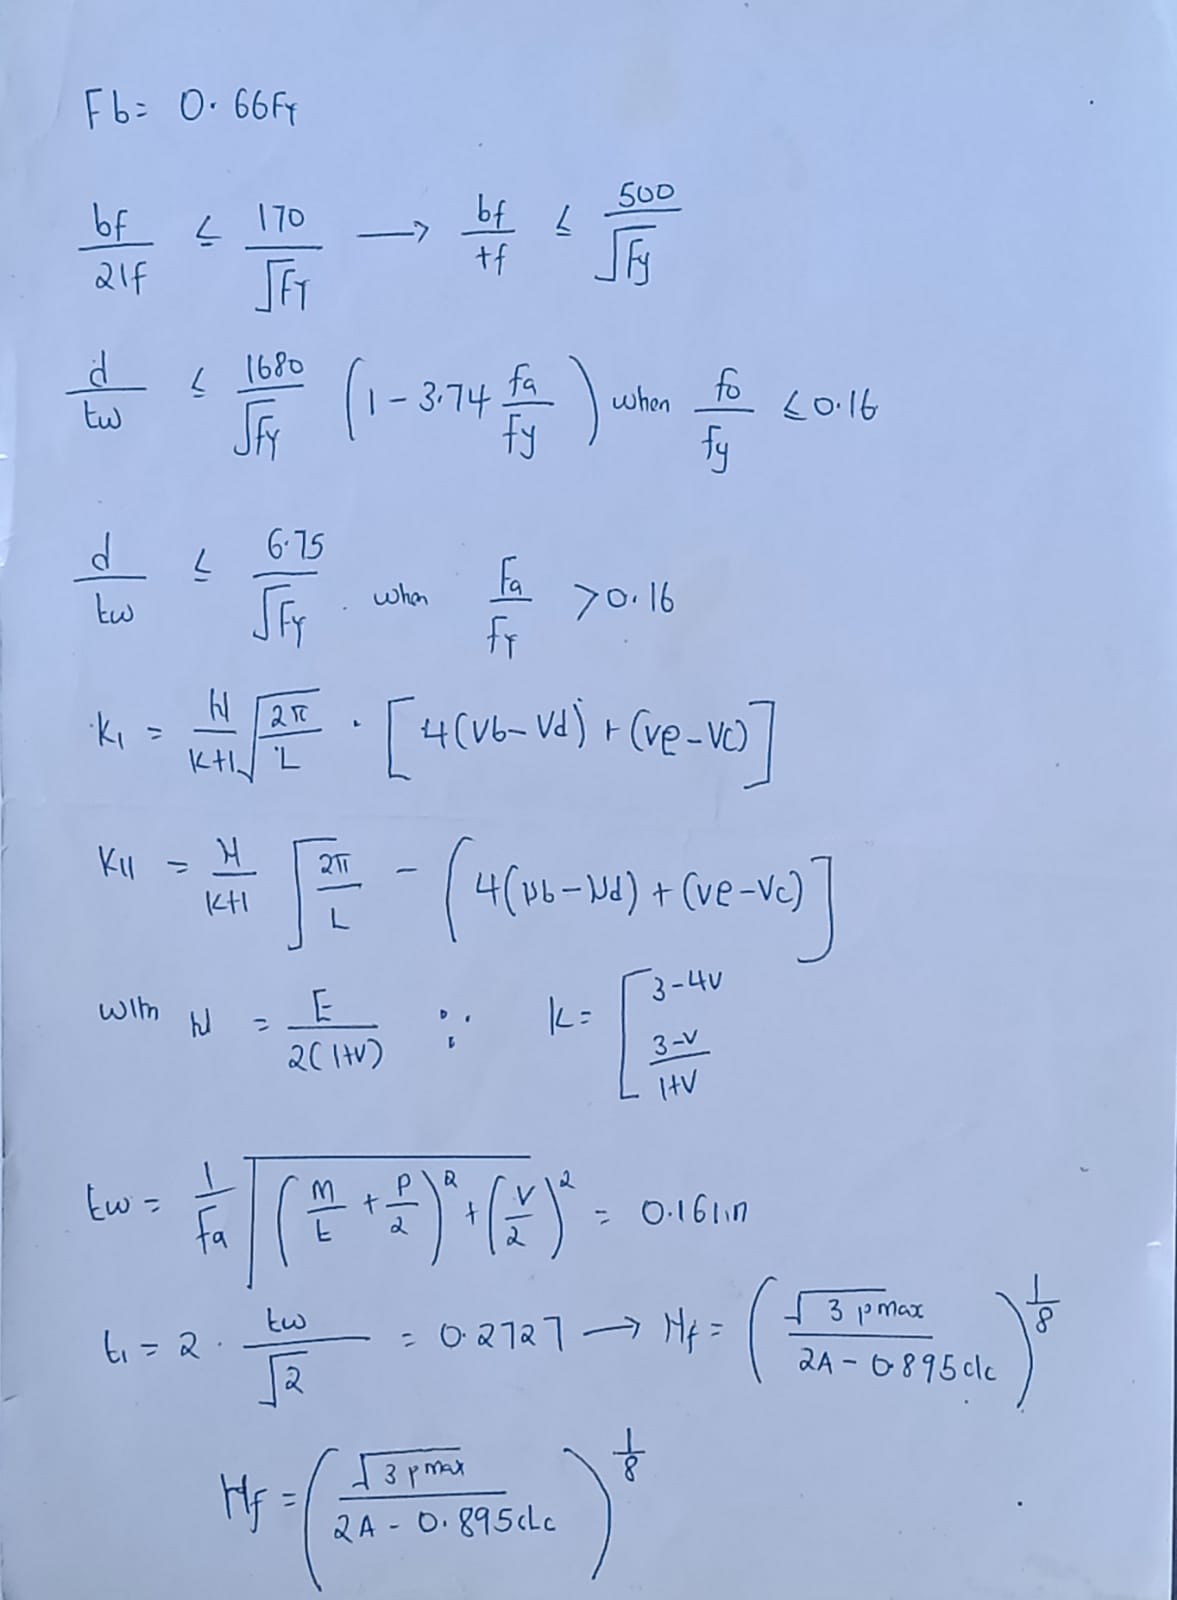 Fb = 0.66Fy
bf/2lf ≤ 170/√Fy → bf/tf ≤ 500/√Fy
d/tw ≤ 1680/√Fy (1 - 3.74 fa/fy) when fo/fy ≤ 0.16
d/tw ≤ 6.75/√Fy . when Fa/Fy > 0.16
K₁ = N/K+1 √2π/L · [4(Vb - Vd) + (ve - vc)]
K11 = N/K+1 √2π/L - (4(Nb - Nd) + (ve - vc)]
with N = E/2(1+v) ∵ K = [3-4v 3-v/1+v
tw = 1/Fa √(M/t + P/2)² + (V/2)² = 0.161in
t₁ = 2 · tw/√2 = 0.2727 → Nf = (√3 pmax/2A - 0.895dc)^1/8
Nf = (√3 pmax/2A - 0.895dLc)^1/8